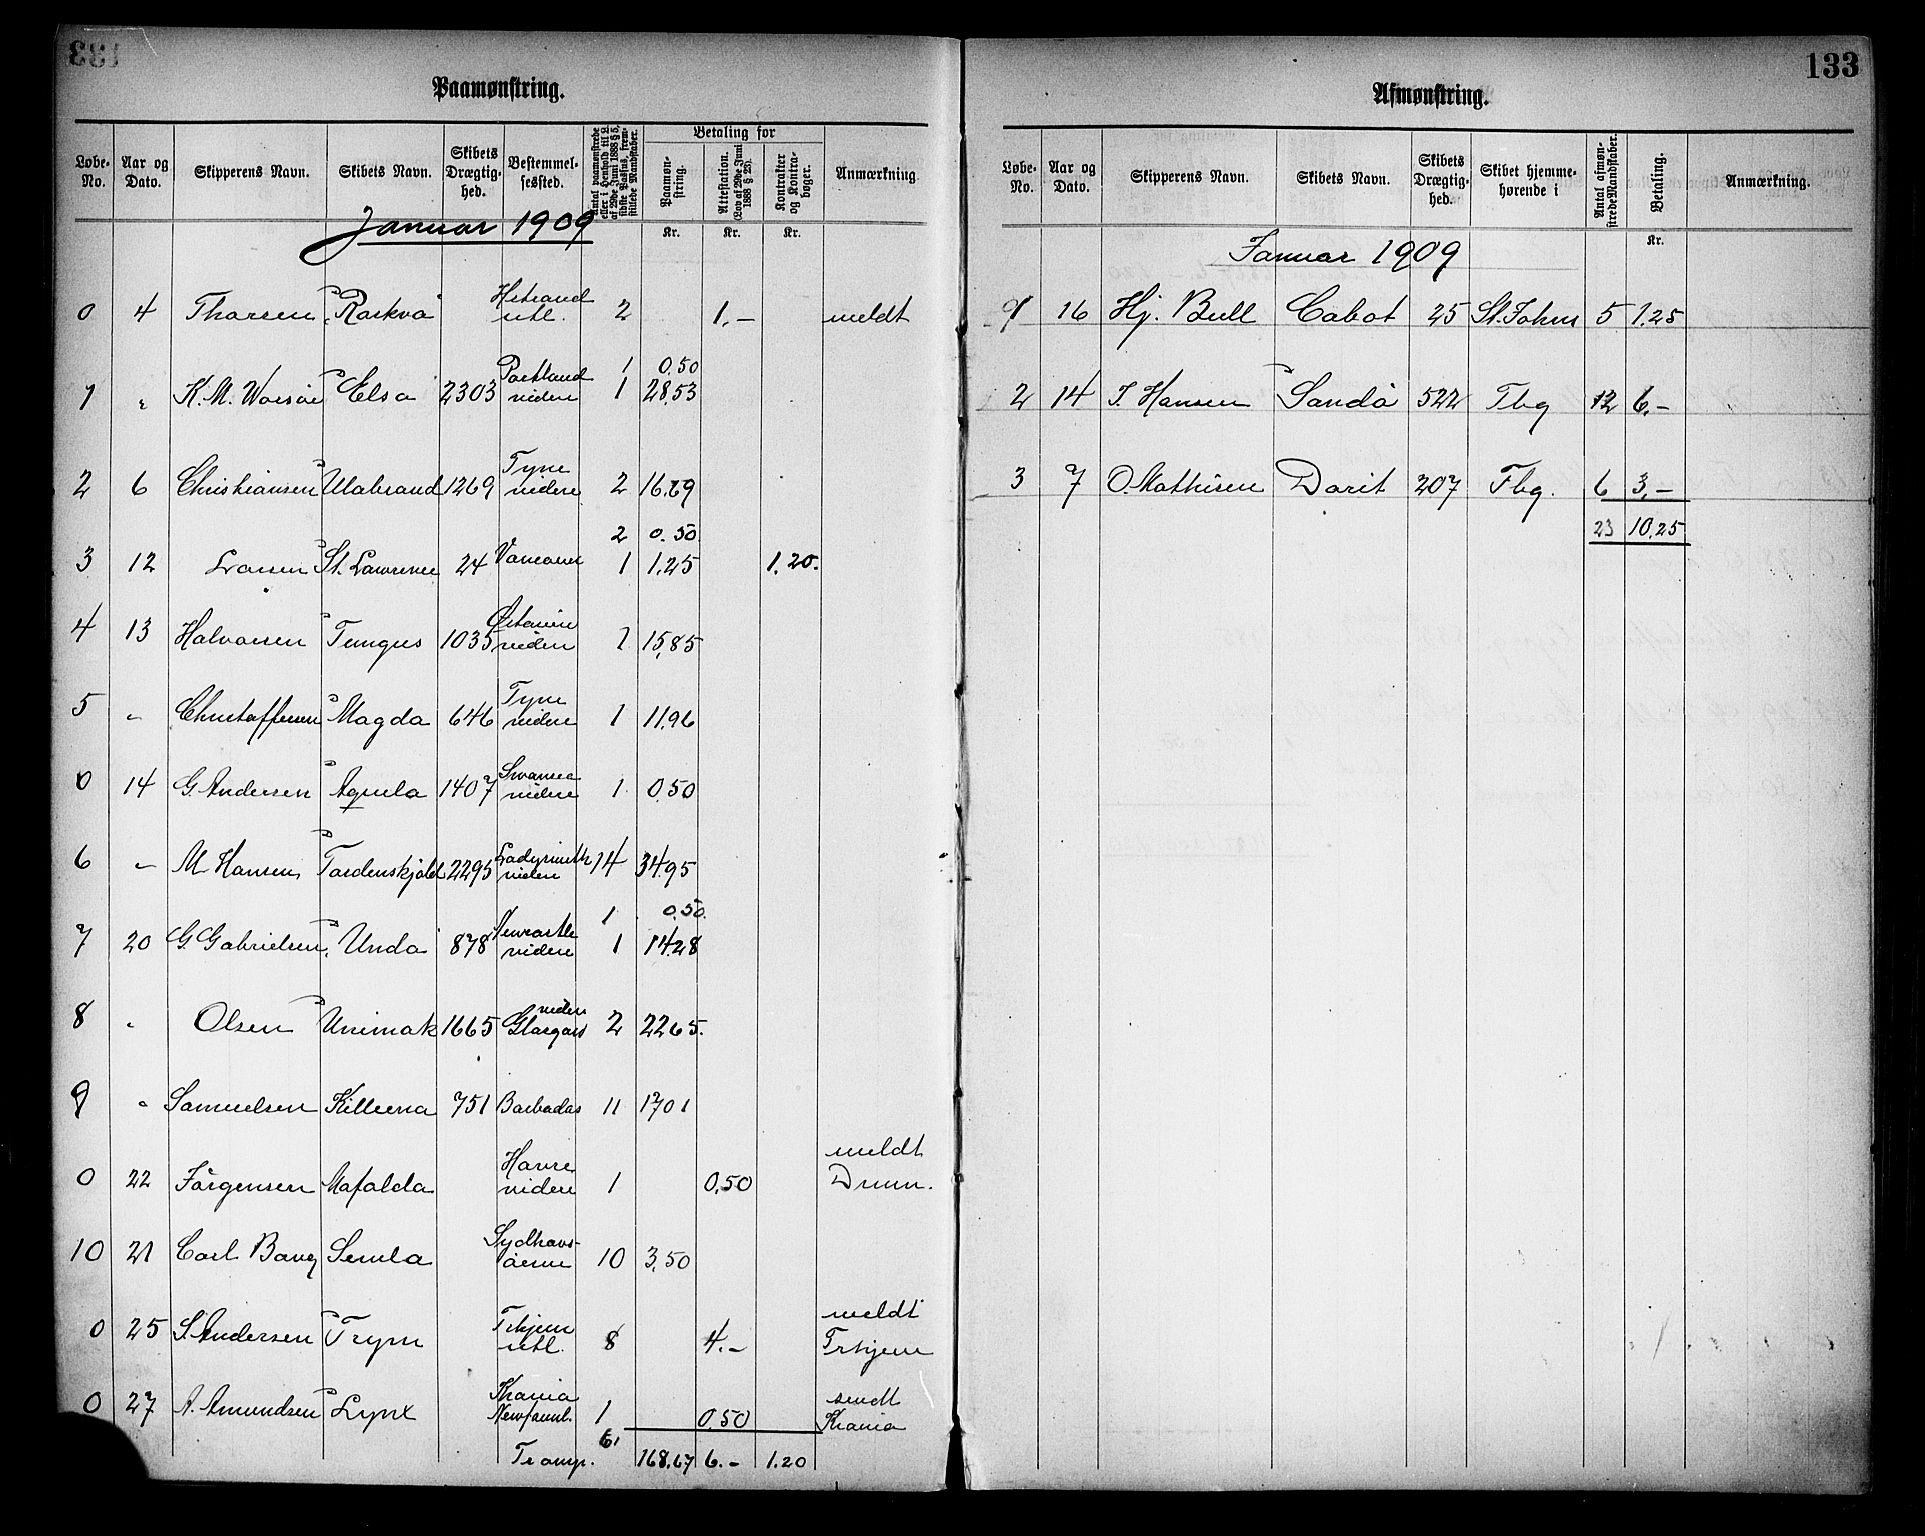 133
Paamønstring.
Løbe-No. Aar og Dato. Skipperens Navn. Skibets Navn. Skibets Drægtig-hed. Bestemmel-sessted. Antal paamønstrede eller i Henhold til L. af 29de Juni 1888 § 5, sidste Passus, frem-stillede Mandskaber. Betaling for Paamøn-string. Attestation. (Lov af 29de Juni 1888 § 23). Kontrakter og Kontra-bøger. Anmærkning.
Kr. Kr. Kr.
Januar 1909
0 4 Thorsen Raskva utl. 2 1.- meldt
1 0.50
1 " K. M. Elsa 2303 Portland videre 1 28.53
2 6 Christiansen Ulabrand 1269 Tyne videre 2 16.69
2 0.50
3 12 Larsen St. Lawrence 24 1 1.25 1.20.
4 13 Halvorsen Tungus 1035 videre 1 15.85
5 " Christoffersen Magda 646 Tyne videre 1 11.96
0 14 G. Andersen Aquila 1407 Swansea videre 1 0.50
6 " M Hansen Tordenskjold 2295 videre 14 34.95
1 0.50.
7 20 G. Gabrielsen Unda 878 Newcastle videre 1 14.28
8 " Olsen Unimak 1665 Glasgow videre 2 22.65.
9 " Samuelsen Killeena 751 Barbados 11 17.01
0 22 Jörgensen Mafalda Havre videre 1 0.50 meldt Dmm.
10 21 Carl Bang Semla Sydhavs-öerne 10 3.50
0 25 S. Andersen Trym Trhjem utl. 8 4.- meldt Trhjem
0 27 A. Amundsen Lynx Krania Newfoundl. 1 0.50 sendt Krania
Transp. 61 168.67 6.- 1.20
133
Afmønstring.
Løbe-No. Aar og Dato. Skipperens Navn. Skibets Navn. Skibets Drægtig-hed. Skibet hjemme-hørende i Antal afmøn-strede Mandskaber. Betaling. Anmærkning.
Kr.
Januar 1909
1 16 Hj. Bull Cabot 25 St. Johns 5 1.25
2 14 J. Hansen Sandö 522 Tbg 12 6.-
3 7 O. Mathisen Dorit 207 Tbg. 6 3.-
23 10.25